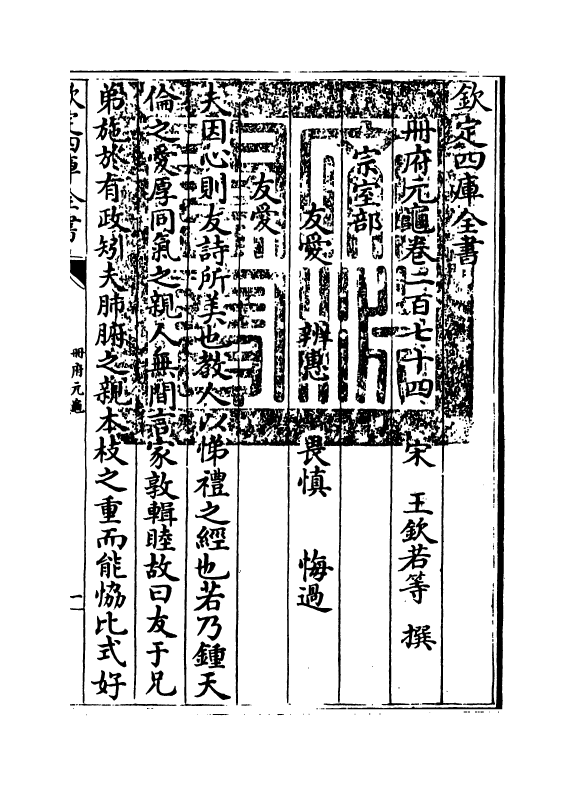 欽定四庫全書
冊府元龜卷二百七十四　宋　王欽若等　撰
宗室部
友愛　辨惠　畏慎　悔過
友愛
夫因心則友詩所美也教人以悌禮之經也若乃鍾天
倫之愛厚同氣之親人無間言家敦輯睦故曰友于兄
弟施於有政矧夫肺腑之親本枝之重而能恊比式好
欽定四庫全書
冊府元龜
一